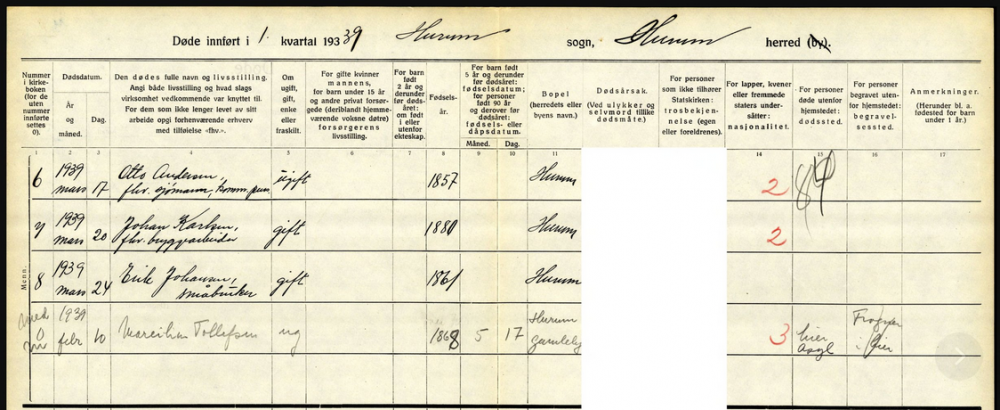 Døde innført i 1. kvartal 1939 Hurum sogn, Hurum herred (by).
Nummer i kirkeboken (for de uten nummer innførte settes 0).
Dødsdatum.
År og måned.
Dag.
Den dødes fulle navn og livsstilling.
Angi både livsstilling og hvad slags
virksomhet vedkommende var knyttet til.
For dem som ikke lenger levet av sitt
arbeide opgi forhenværende erhverv
med tilføielse «fhv.».
Om ugift, gift, enke eller fraskilt.
For gifte kvinner
mannens,
for barn under 15 år
og andre privat forsørgede (deriblandt hjemmeværende voksne døtre)
forsørgerens
livsstilling.
For barn født 2 år og derunder før dødsåret: om født i eller utenfor ekteskap.
Fødselsår.
For barn født
5 år og derunder
før dødsåret:
fødselsdatum;
for personer
født 90 år
og derover før
dødsåret:
fødsels- eller
dåpsdatum.
Måned.
Dag.
Bopel
(herredets eller
byens navn).
Dødsårsak.
(Ved ulykker og
selvmord tillike
dødsmåte.)
For personer
som ikke tilhører
Statskirken:
trosbekjennelse
(egen
eller foreldrenes).
For lapper, kvener
eller fremmede
staters undersåtter:
nasjonalitet.
For personer
døde utenfor
hjemstedet:
dødssted.
For personer
begravet utenfor
hjemstedet:
begravelsessted.
Anmerkninger.
(Herunder bl. a.
fødested for barn
under 1 år.)
1 2 3 4 5 6 7 8 9 10 11 14 15 16 17
Menn.
6 1939 mars 17 Otto Andersen, fhv. sjømann, ugift 1857 Hurum 2 84
7 1939 mars 20 Johan Karlsen, fhv. bryggearbeider gift 1880 Hurum 2
8 1939 mars 24 Erik Johansen, småbruker gift 1861 Hurum
0 1939 febr 10 Tollefsen ug 1868 5 17 Hurum gamleh 3 Lier asyl Frogner i Lier